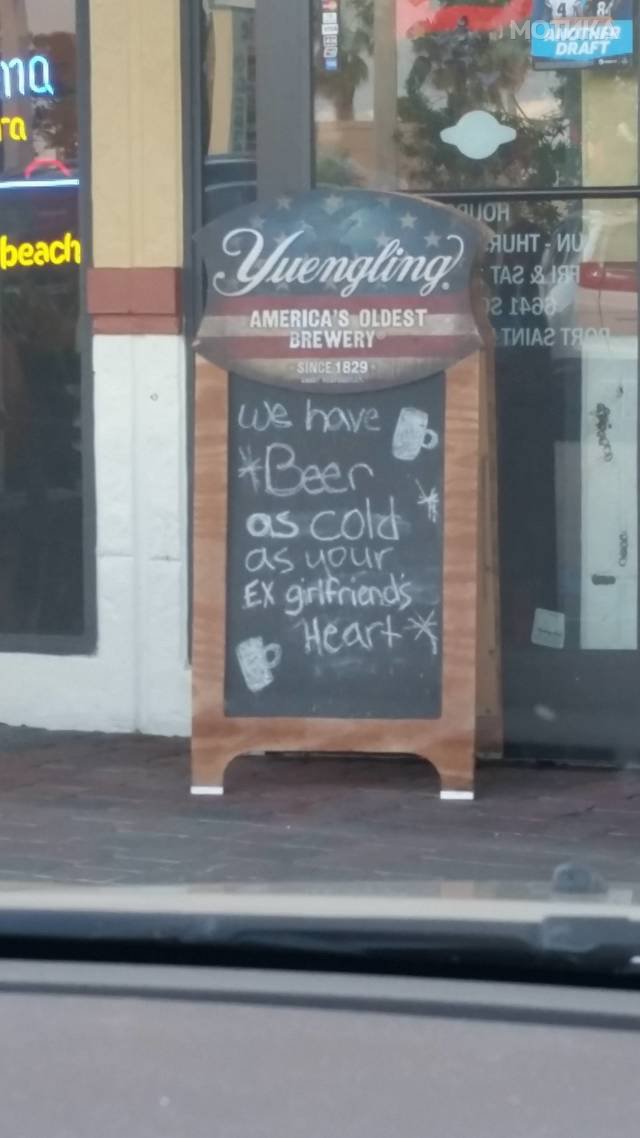 МОТИКА
ANOTHER
DRAFT
beach
HOUR
UN - THUR
FRI & SAT
6641 S
PORT SAINT
Yuengling
AMERICA'S OLDEST
BREWERY
SINCE 1829
we have
*Beer
as cold
as your
EX girlfriend's
Heart*